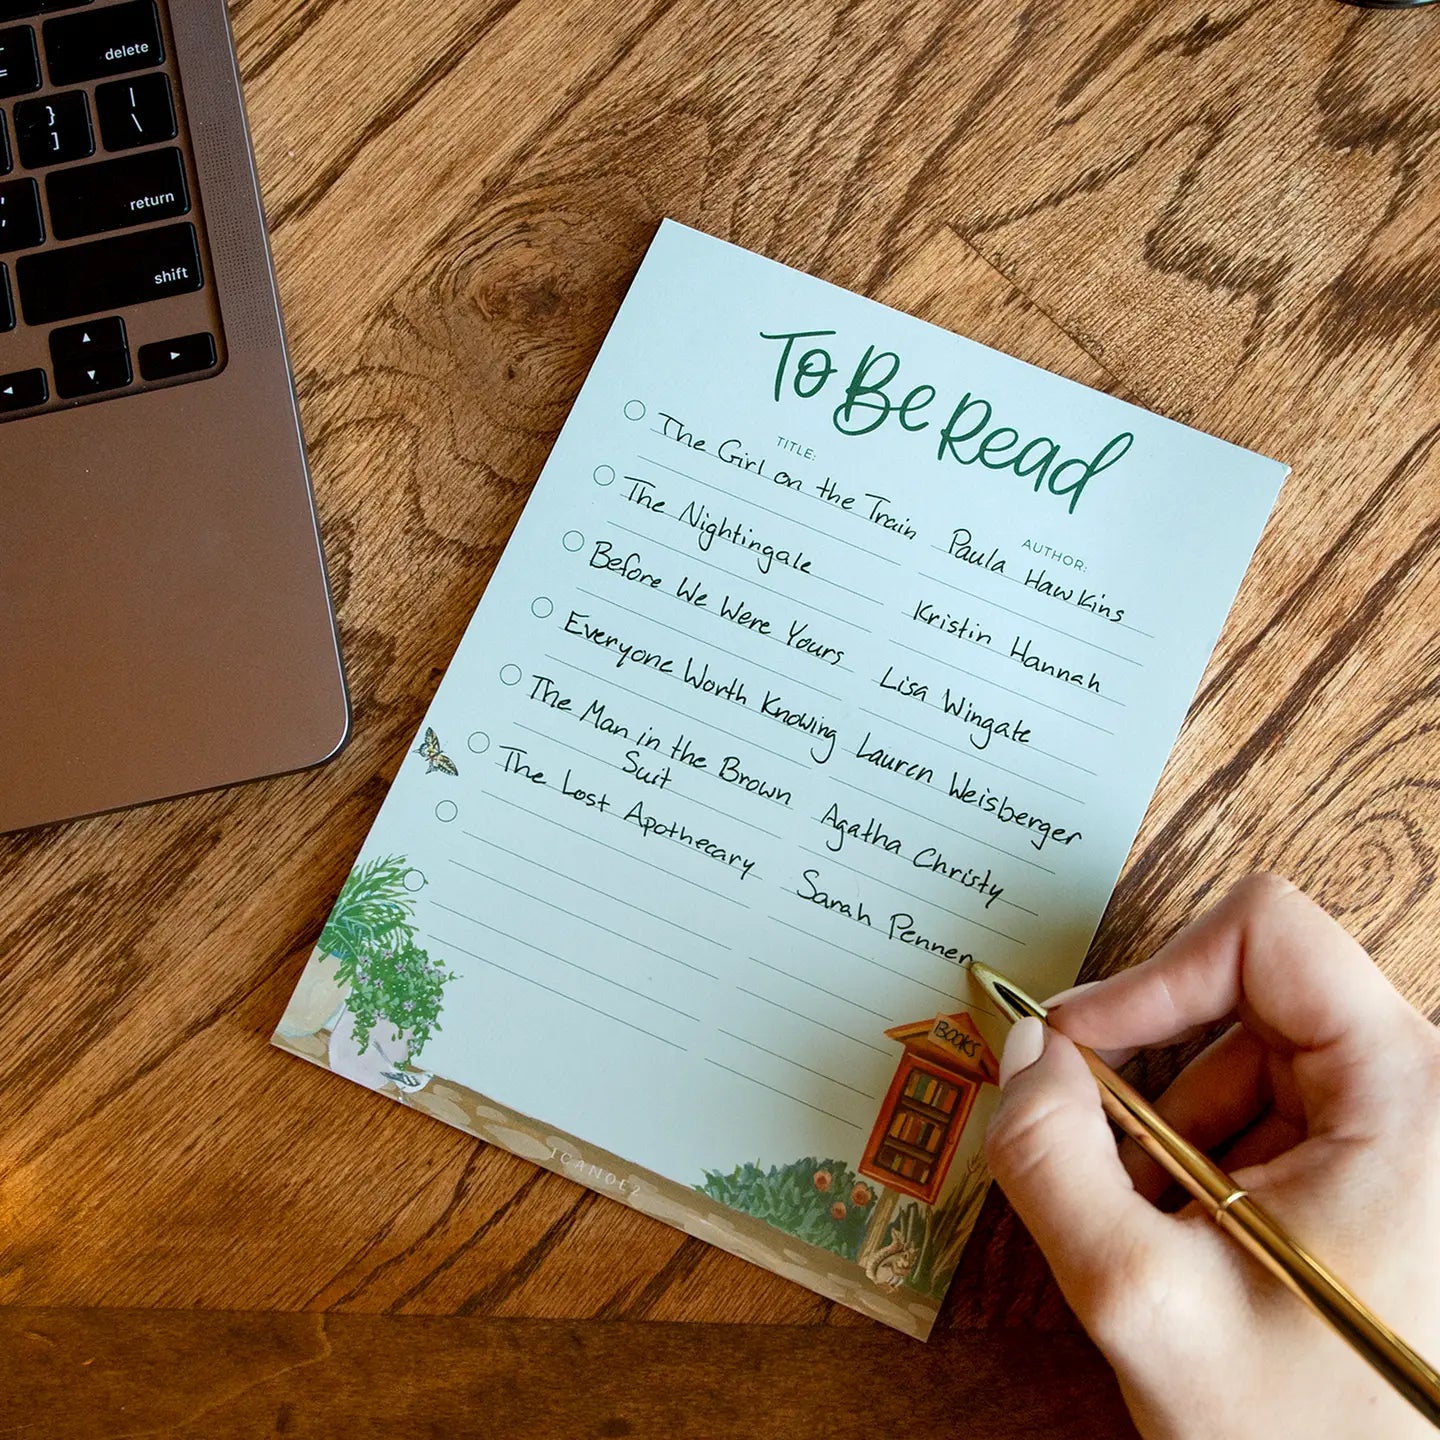 delete
}
]
|
\
return
shift
To Be Read
TITLE:
AUTHOR:
The Girl on the Train Paula Hawkins
The Nightingale Kristin Hannah
Before We Were Yours Lisa Wingate
Everyone Worth Knowing Lauren Weisberger
The Man in the Brown Suit Agatha Christy
The Lost Apothecary Sarah Penner
BOOKS